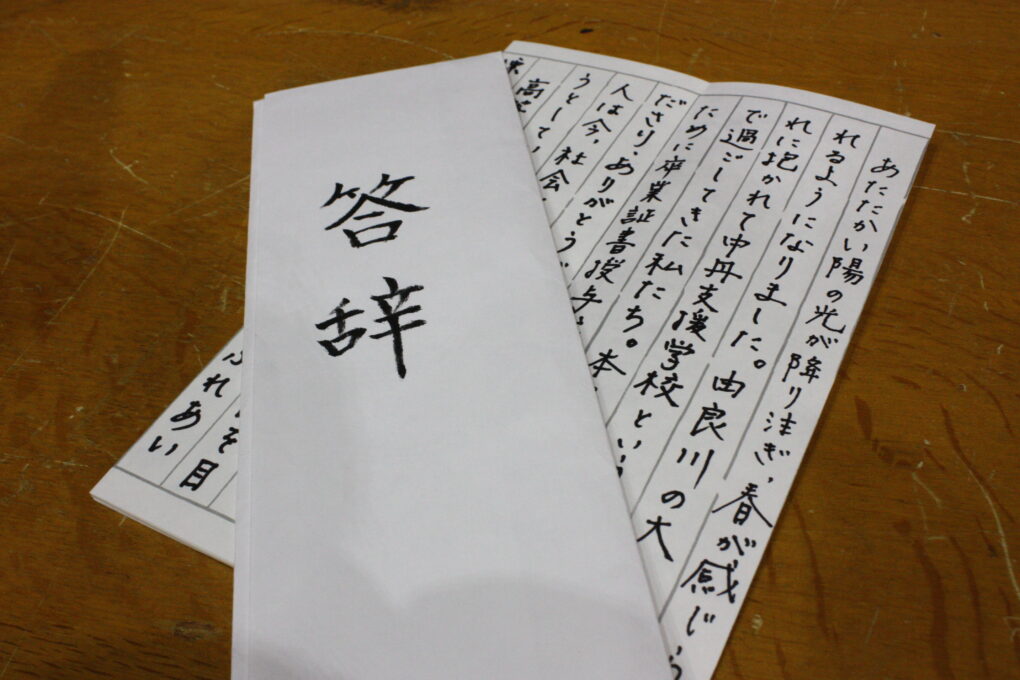 答辞
あたたかい陽の光が降り注ぎ、春が感じら
れるようになりました。由良川の大
れに抱かれて中丹支援学校という
で過ごしてきた私たち。本
ために卒業証書授与
ださり、ありがとうご
人は今、社会
うとして
高
ふれあい
を目